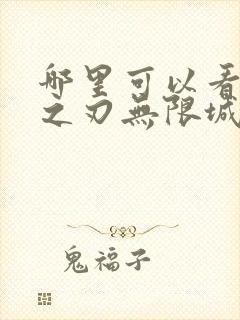 哪里可以看
之刃無限城
鬼福子